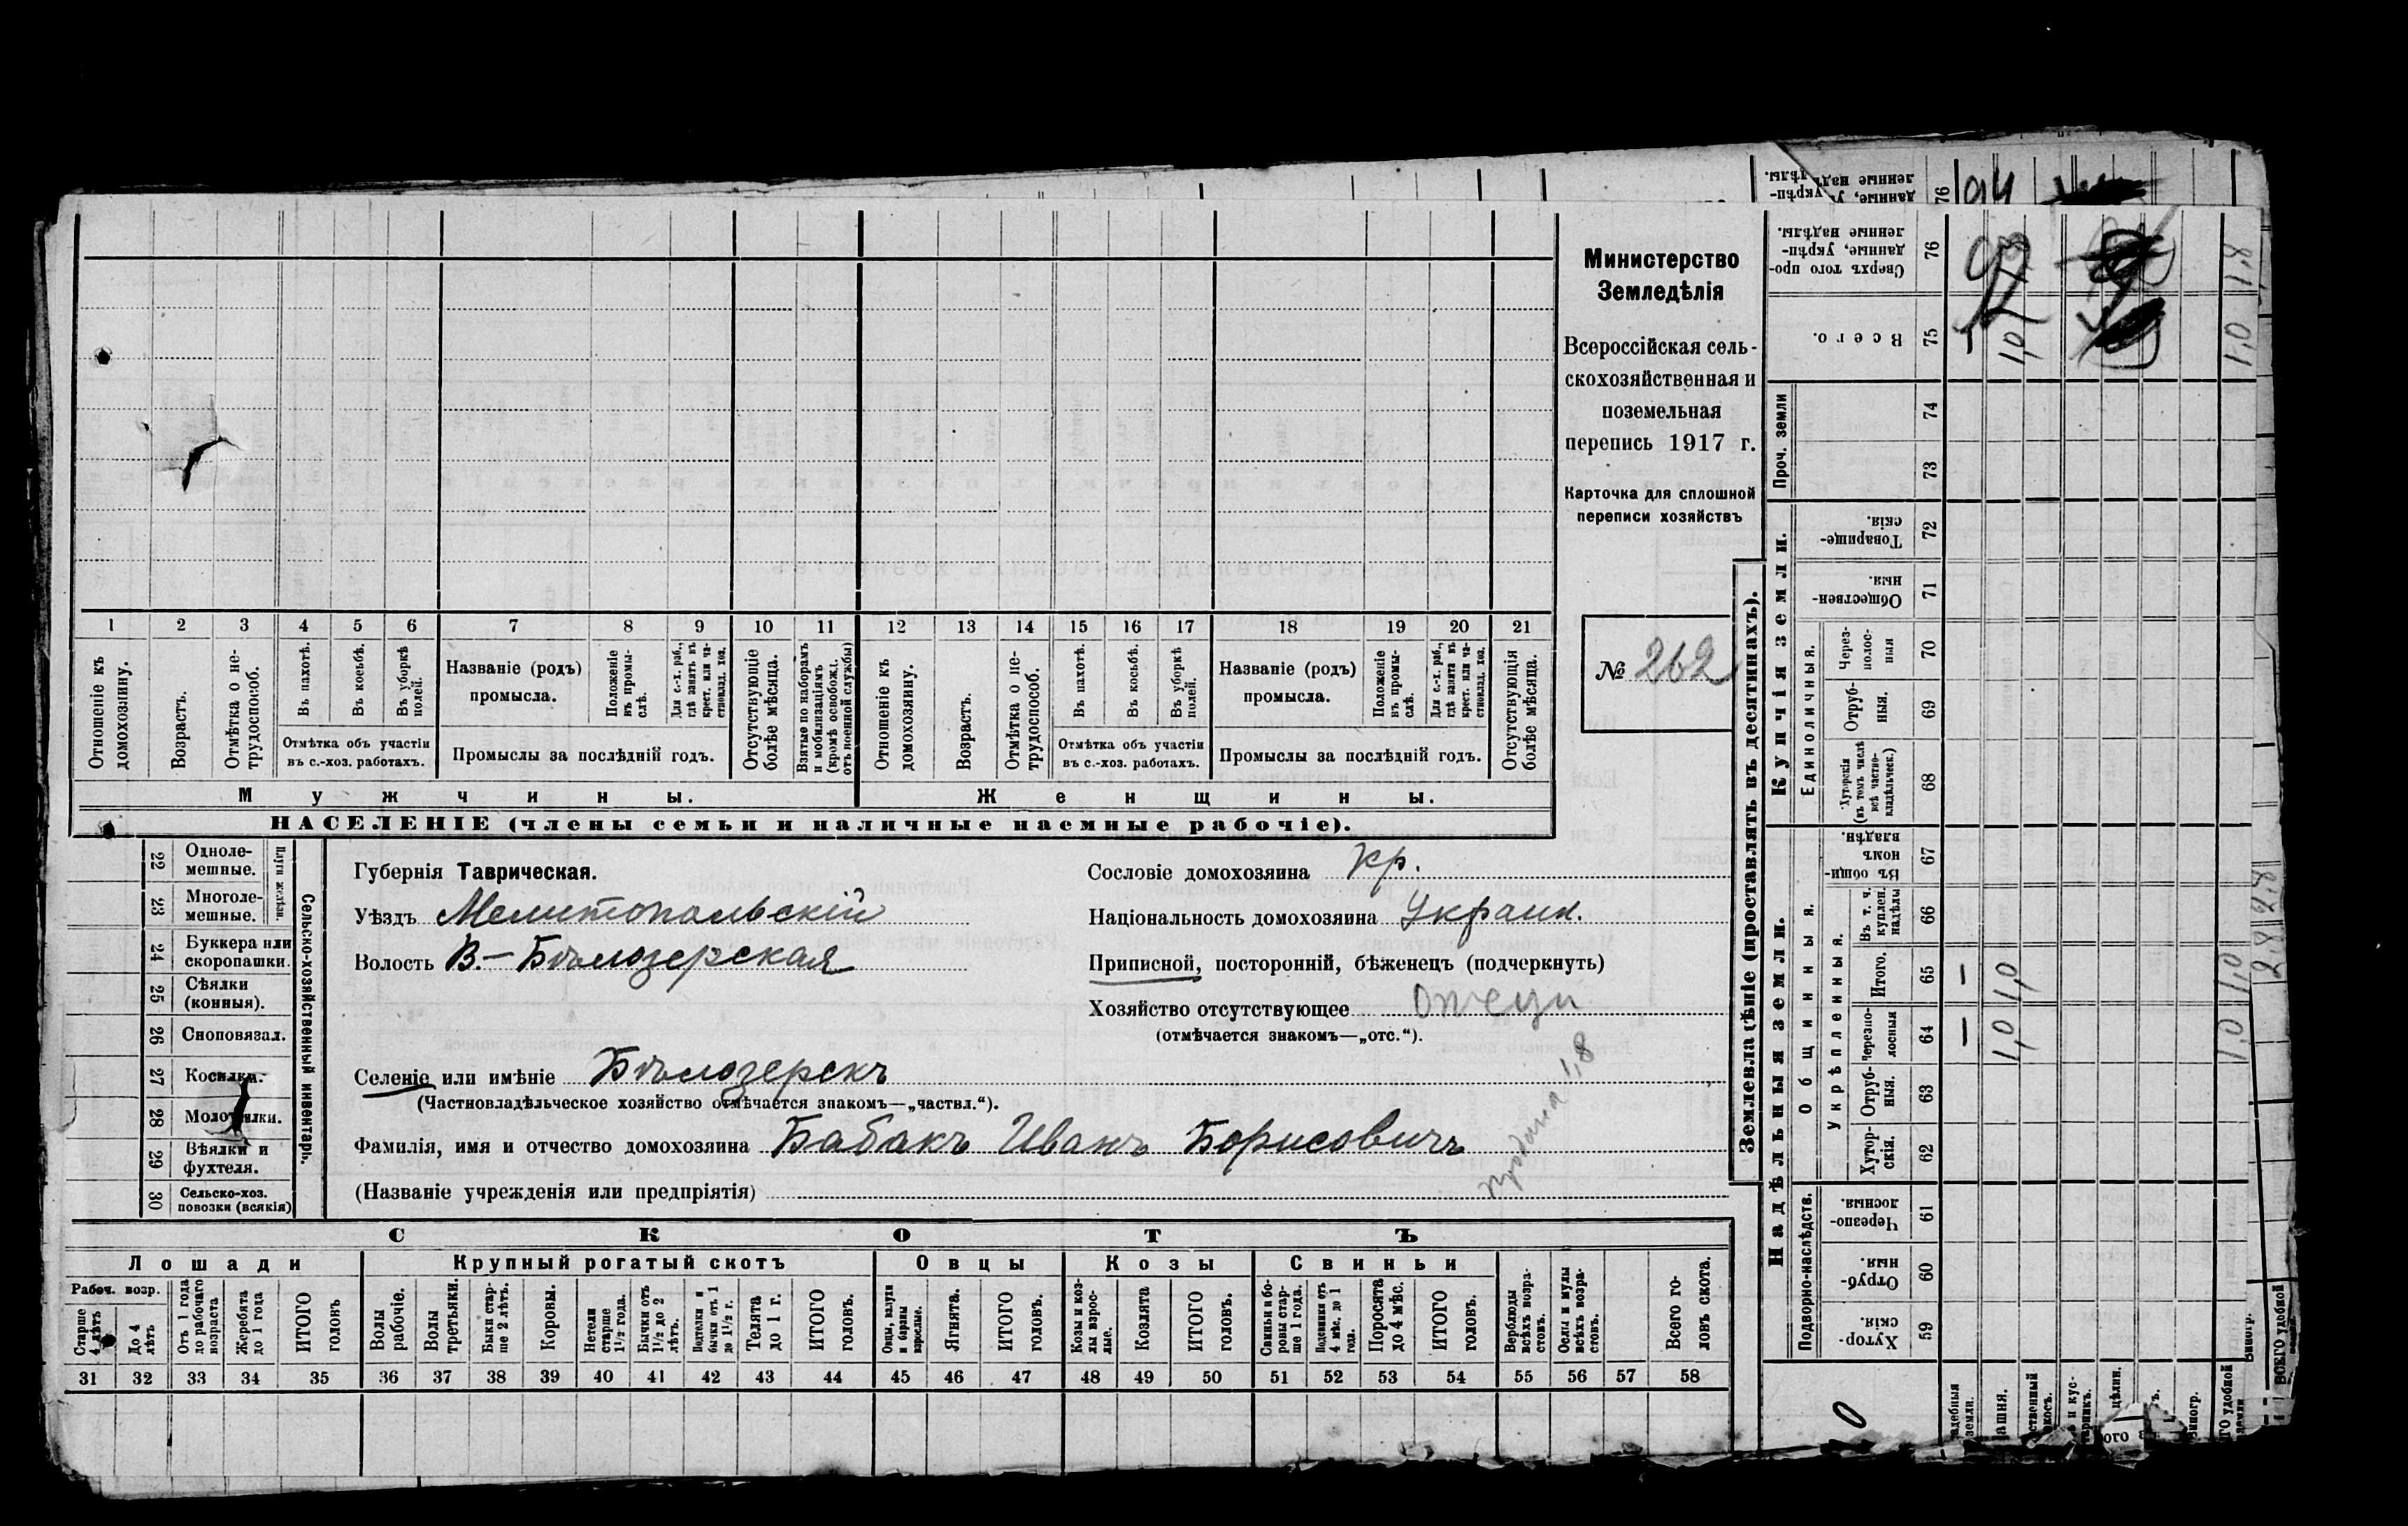 Министерство
Земледѣлія
Всероссійская сель-
скохозяйственная и
поземельная
перепись 1917 г.
Карточка для сплошной
переписи хозяйствъ
№ 262
1 2 3 4 5 6 7 8 9 10 11 12 13 14 15 16 17 18 19 20 21
Отношеніе къ домохозяину.
Возрастъ.
Отмѣтка о не-трудоспособ.
Въ пахотѣ.
Въ косьбѣ.
Въ уборкѣ полей.
Отмѣтка объ участіи
въ с.-хоз. работахъ.
Названіе (родъ)
промысла.
Положеніе въ промы-слѣ.
Для с.-х. раб., гдѣ занятъ въ крест. или ча-стновлад. хоз.
Промыслы за послѣдній годъ.
Отсутствующіе болѣе мѣсяца.
Взятые по наборамъ и мобилизаціямъ (кромѣ освобожд. отъ военной службы)
Отношеніе къ домохозяину.
Возрастъ.
Отмѣтка о не-трудоспособ.
Въ пахотѣ.
Въ косьбѣ.
Въ уборкѣ полей.
Отмѣтка объ участіи
въ с.-хоз. работахъ.
Названіе (родъ)
промысла.
Положеніе въ промы-слѣ.
Для с.-х. раб., гдѣ занята въ крест. или ча-стновлад. хоз.
Промыслы за послѣдній годъ.
Отсутствующія болѣе мѣсяца.
Мужчины.
Женщины.
НАСЕЛЕНІЕ (члены семьи и наличные наемные рабочіе).
22 Одноле-мешные.
23 Многоле-мешные.
Плуги желѣзн.
24 Буккера или скоропашки.
25 Сѣялки (конныя).
26 Сноповязал.
27 Косилки.
28 Молотилки.
29 Вѣялки и фухтеля.
30 Сельско-хоз. повозки (всякія)
Сельско-хозяйственный инвентарь.
Губернія Таврическая.
Уѣздъ Мелитопольскій
Волость В.-Бѣлозерская
Селеніе или имѣніе Бѣлозерскъ
(Частновладѣльческое хозяйство отмѣчается знакомъ—„частвл.“).
Фамилія, имя и отчество домохозяина Бабакъ Иванъ Борисовичъ
(Названіе учрежденія или предпріятія)
Сословіе домохозяина кр.
Національность домохозяина Украин.
Приписной, посторонній, бѣженецъ (подчеркнуть)
Хозяйство отсутствующее
(отмѣчается знакомъ—„отс.“).
продана 1,8
СКОТЪ
Лошади
Крупный рогатый скотъ
Овцы
Козы
Свиньи
Рабоч. возр.
Старше 4 лѣтъ
До 4 лѣтъ
Отъ 1 года до рабочаго возраста
Жеребята до 1 года
ИТОГО головъ
Волы рабочіе.
Волы третьяки.
Быки стар-ше 2 лѣтъ.
Коровы.
Нетели старше 1½ года.
Бычки отъ 1½ до 2 лѣтъ.
Подтелки и бычки отъ 1 до 1½ г.
Телята до 1 г.
ИТОГО головъ.
Овцы, валухи и бараны взрослые.
Ягнята.
ИТОГО головъ.
Козы и коз-лы взрос-лые.
Козлята
ИТОГО головъ.
Свиньи и бо-ровы стар-ше 1 года.
Подсвинки отъ 4 мѣс. до 1 года.
Поросята до 4 мѣс.
ИТОГО головъ.
Верблюды всѣхъ возра-стовъ.
Ослы и мулы всѣхъ возра-стовъ.
Всего го-ловъ скота.
31 32 33 34 35 36 37 38 39 40 41 42 43 44 45 46 47 48 49 50 51 52 53 54 55 56 57 58
Землевладѣніе (проставлять въ десятинахъ).
Надѣльныя земли.
Купчія земли.
Проч. земли
Подворно-наслѣдств.
Общинныя.
Укрѣпленныя.
Единоличныя.
Хутор-скія. 59
Отруб-ныя. 60
Черезпо-лосныя 61
Хутор-скія. 62
Отруб-ныя. 63
Черезпо-лосныя 64 — 1,0 1,0
Итого. 65 — 1,0 1,0
Въ т. ч. куплен. надѣлы 66
Въ общи-номъ владѣн. 67
Хуторскія (въ томъ числѣ всѣ частно-владѣльческ.) 68
Отруб-ныя. 69
Через-полос-ныя 70
Обществен-ныя. 71
Товарище-скія. 72
73
74
Всего. 75 1,0 1,0
Сверхъ того про-данные, укрѣп-ленные надѣлы. 76 1,8